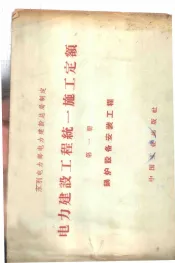 水利电力部电力建設总局制定
电力建設工程統一施工定額
第一册
鍋炉設备安装工程
中国工业出版社